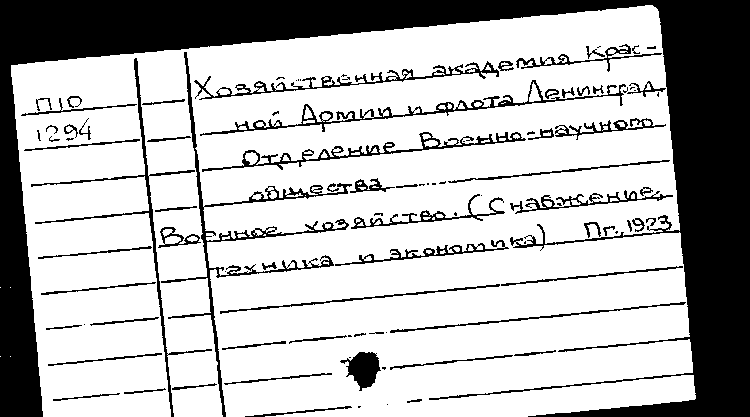 Хозяйственная академия Крас-
П10
ной Армии и флота Ленинград.
1294
Отделение Военно-научного
общества
Военное хозяйство. (Снабжение,
техника и экономика) Пг., 1923